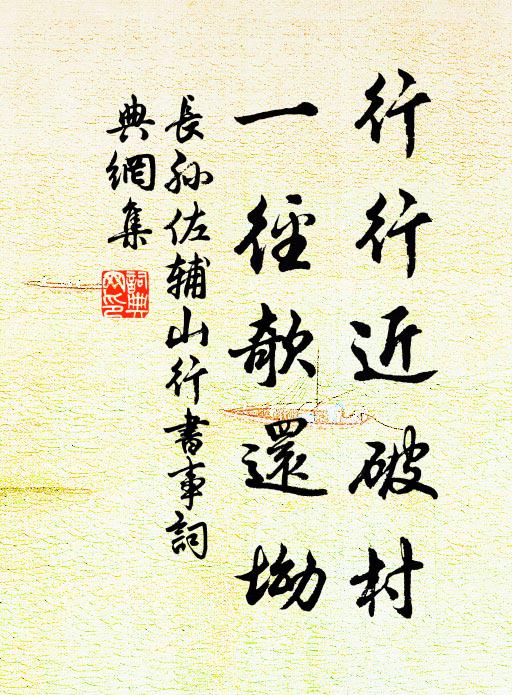 行行近破村
一徑欹還坳
長孫佐輔山行書事詞
典網集
詞典
网印